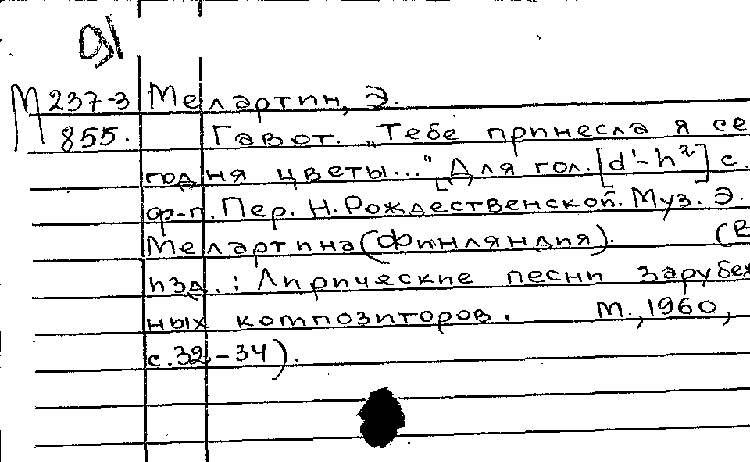 М 237-3 Мелартин, Э.
855. Гавот. „Тебе принесла я се
годня цветы..." [Для гол. [d'-h²] с.
ф-п. Пер. Н. Рождественской. Муз. Э.
Мелартина (Финляндия). (В
изд.: Лирические песни зарубеж
ных композиторов. М., 1960,
с. 32-34).